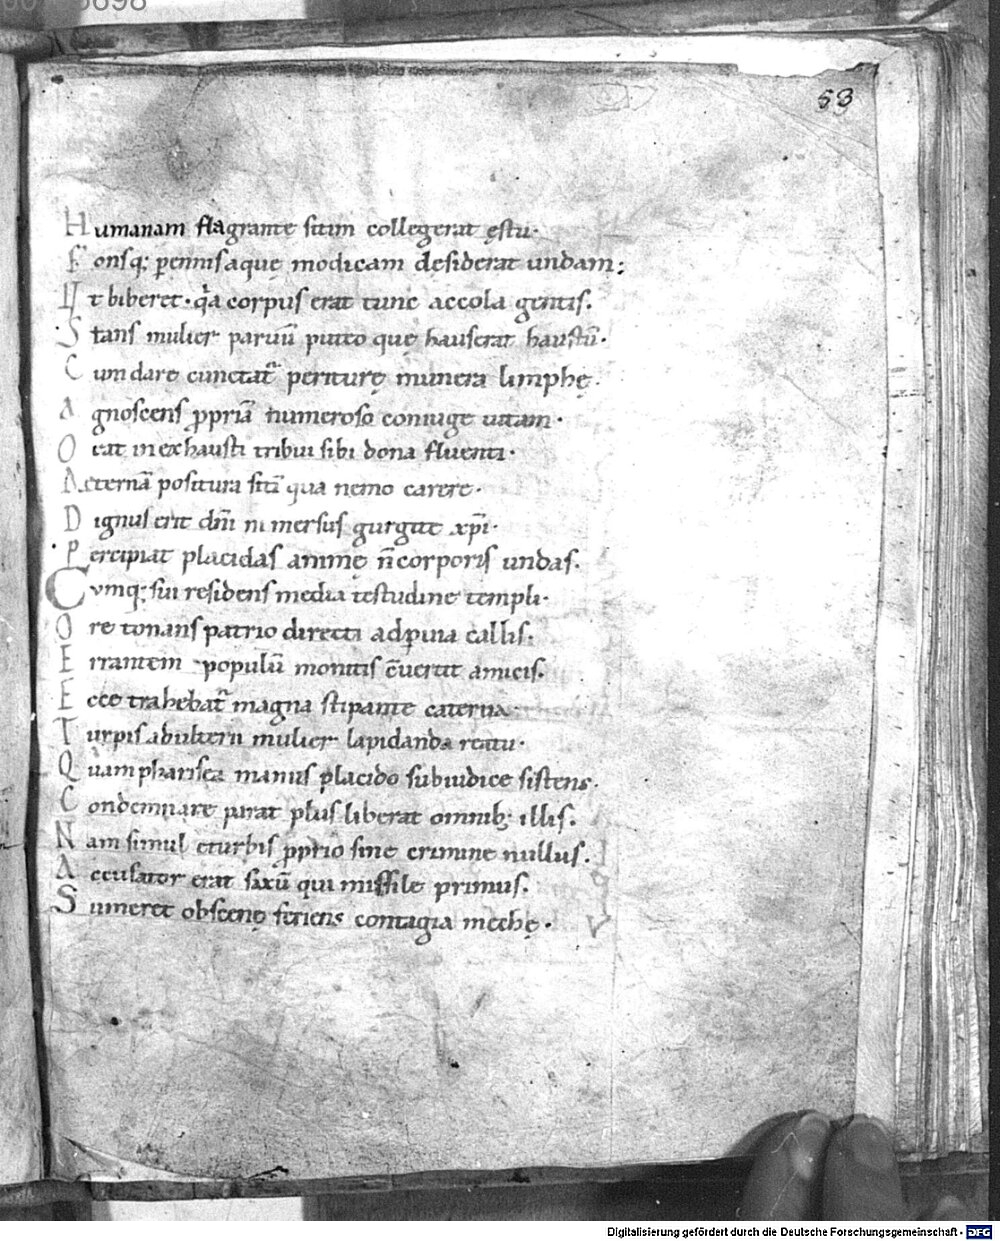 53
Humanam flagrante sitim collegerat ęstu·
Fonsq; pennisaquę modicam desiderat undam;
Ut biberet· q̊a corpus erat tunc accola gentis.
Stans mulier paruū puteo quę hauserat haustū·
Cum dare cunctat᷑ periturę munera limphę.
Agnoscens ꝓpriā numeroso coniuge uitam·
Orat inexhausti tribui sibi dona fluenti·
Aeternā positura sitī qua nemo carere·
Dignus erit dn̄i ni mersus gurgite xp̄i·
Percipiat placidas animę n̄ corporis undas.
Cumq; sui residens media testudine templi·
Ore tonans patrio directi ad ꝑuia callis.
Errantem populū monitis c̄uertit amicis.
Ecce trahebat᷑ magna stipante caterua·
Turpis abulterii mulier lapidanda reatu·
Quam pharisea manus placido sub iudice sistens.
Condemnare parat plus liberat omnib; illis.
Nam simul eturbis ꝓprio sine crimine nullus.
Accusator erat saxū qui missile primus.
Sumeret obscenę feriens contagia mechę·
Digitalisierung gefördert durch die Deutsche Forschungsgemeinschaft - DFG